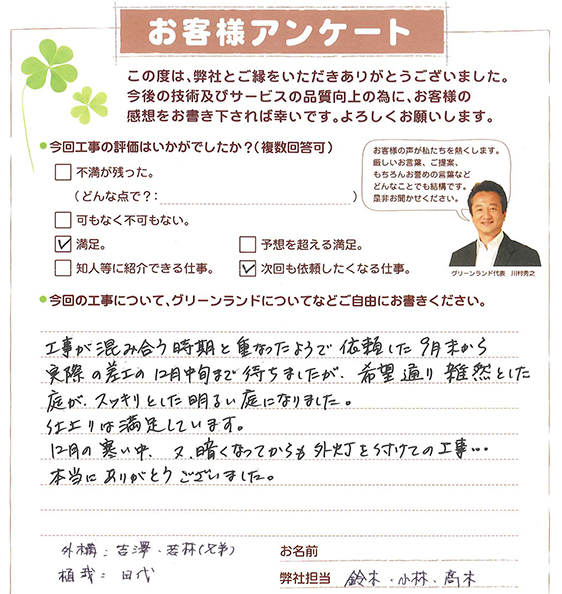 お客様アンケート
この度は、弊社とご縁をいただきありがとうございました。
今後の技術及びサービスの品質向上の為に、お客様の
感想をお書き下されば幸いです。よろしくお願いします。
今回工事の評価はいかがでしたか?(複数回答可)
不満が残った。
(どんな点で?: )
可もなく不可もない。
満足。
予想を超える満足。
知人等に紹介できる仕事。
次回も依頼したくなる仕事。
お客様の声が私たちを熱くします。
厳しいお言葉、ご提案、
もちろんお誉めの言葉など
どんなことでも結構です。
是非お聞かせください。
グリーンランド代表 川村秀之
今回の工事について、グリーンランドについてなどご自由にお書きください。
工事が混み合う時期と重なったようで依頼した9月末から
実際の差工の12月中旬まで待ちましたが、希望通り雑然とした
庭が、スッキリとした明るい庭になりました。
仕上りは満足しています。
12月の寒い中、又、暗くなってからも外灯を付けての工事…
本当にありがとうございました。
外構: 吉澤・若林(兄弟)
植栽: 田代
お名前
弊社担当 鈴木・小林・高木